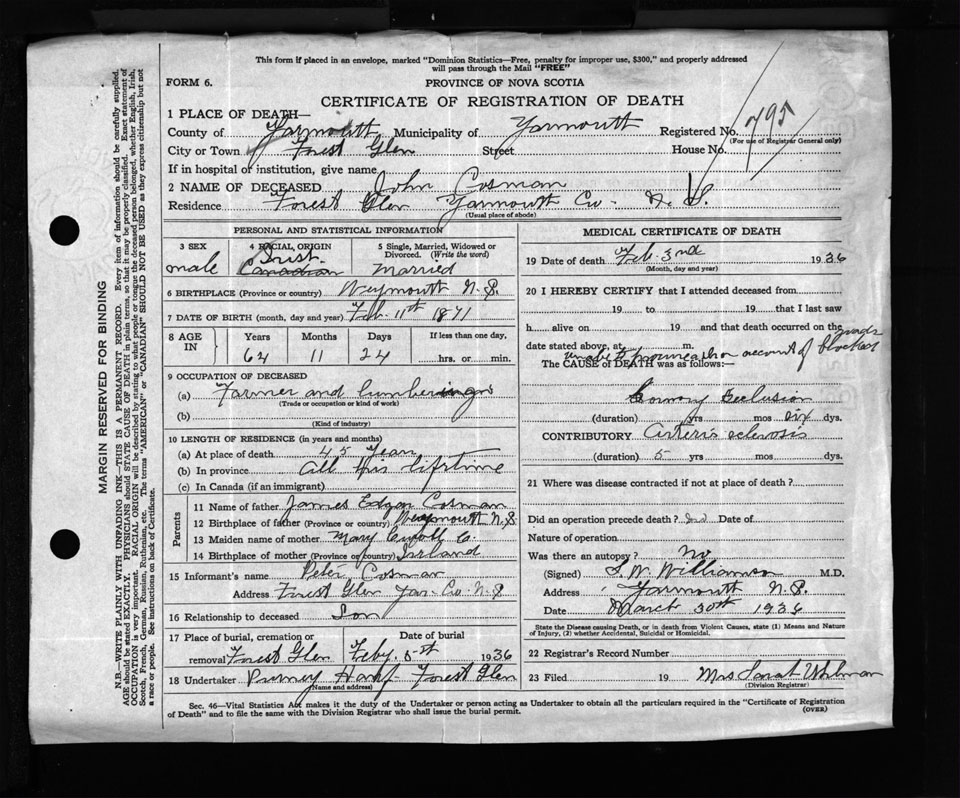 This form if placed in an envelope, marked "Dominion Statistics—Free, penalty for improper use, $300," and properly addressed
will pass through the Mail "FREE"
FORM 6. PROVINCE OF NOVA SCOTIA
CERTIFICATE OF REGISTRATION OF DEATH
1 PLACE OF DEATH—
County of Yarmouth Municipality of Yarmouth Registered No. 795
(For use of Registrar General only)
City or Town Forest Glen Street House No.
If in hospital or institution, give name
2 NAME OF DECEASED John Cosman
Residence Forest Glen Yarmouth Co. N. S.
(Usual place of abode)
PERSONAL AND STATISTICAL INFORMATION
3 SEX 4 RACIAL ORIGIN 5 Single, Married, Widowed or Divorced. (Write the word)
male Canadian Married
6 BIRTHPLACE (Province or country) Weymouth N.S.
7 DATE OF BIRTH (month, day and year) Feb. 11th 1871
8 AGE IN Years Months Days If less than one day,
64 11 24 hrs. or min.
9 OCCUPATION OF DECEASED
(a) Farmer and lumbering
(Trade or occupation or kind of work)
(b)
(Kind of industry)
10 LENGTH OF RESIDENCE (in years and months)
(a) At place of death 45 Years
(b) In province All his lifetime
(c) In Canada (if an immigrant)
Parents
11 Name of father James Edgar Cosman
12 Birthplace of father (Province or country) Weymouth N.S.
13 Maiden name of mother Mary C.
14 Birthplace of mother (Province or country) Ireland
15 Informant's name Peter Cosman
Address Forest Glen Yar. Co. N.S
16 Relationship to deceased Son
17 Place of burial, cremation or removal Forest Glen Date of burial Feby. 5th 1936
18 Undertaker Forest Glen
(Name and address)
MEDICAL CERTIFICATE OF DEATH
19 Date of death Feb. 3rd 1936
(Month, day and year)
20 I HEREBY CERTIFY that I attended deceased from
19 to 19 that I last saw
h alive on 19 and that death occurred on the
date stated above, at m.
on account of roads blocked
The CAUSE of DEATH was as follows:—
Coronary Occlusion
(duration) yrs mos six dys.
CONTRIBUTORY Arterio sclerosis
(duration) 5 yrs mos dys.
21 Where was disease contracted if not at place of death?
Did an operation precede death? Date of
Nature of operation
Was there an autopsy? No
(Signed) S. W. Williamson M.D.
Address Yarmouth N.S.
Date March 30th 1936
State the Disease causing Death, or in death from Violent Causes, state (1) Means and Nature
of Injury, (2) whether Accidental, Suicidal or Homicidal.
22 Registrar's Record Number
23 Filed 19 Mrs Sarah Uhlman
(Division Registrar)
Sec. 46—Vital Statistics Act makes it the duty of the Undertaker or person acting as Undertaker to obtain all the particulars required in the "Certificate of Registration
of Death" and to file the same with the Division Registrar who shall issue the burial permit. (OVER)
MARGIN RESERVED FOR BINDING
N.B.—WRITE PLAINLY WITH UNFADING INK—THIS IS A PERMANENT RECORD. Every item of information should be carefully supplied.
AGE should be stated EXACTLY. PHYSICIANS should STATE CAUSE OF DEATH in plain terms, so that it may be properly classified. Exact statement of
OCCUPATION is very important. RACIAL ORIGIN will be described by stating to what people or tongue the deceased person belonged, whether English, Irish,
Scotch, French, German, Russian, Ruthenian, etc. The terms "AMERICAN" or "CANADIAN" SHOULD NOT BE USED as they express citizenship but not
a race or people. See instructions on back of Certificate.